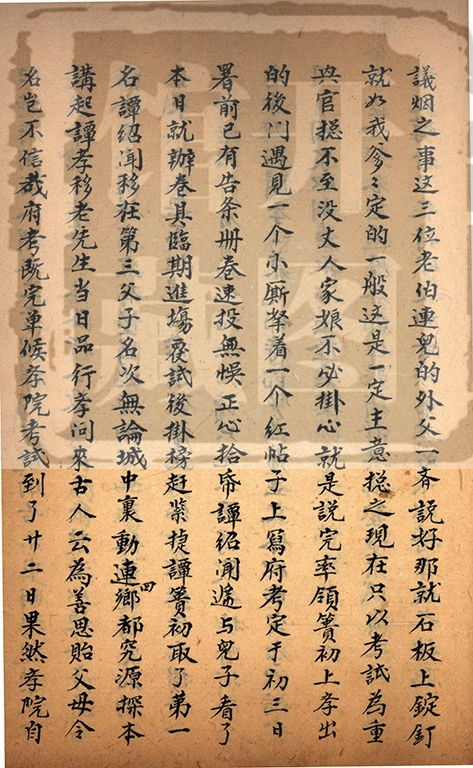 議烟之事这三位老伯連兒的外父一斉説好那就石板上錠釘
就如我爹〻定的一般这是一定主意捴之現在只以考試為重
與官捴不至没丈人家娘不必掛心就是説完率領簣初上孝出
的後门遇見一个小厮拏着一个紅帖子上寫府考定于初三日
署前已有告条册卷速投無悞正心拾帋譚紹聞遞与兒子看了
本日就辦卷具臨期進塲覆試後掛榜赶紫捷譚簣初取了第一
名譚紹聞移在第三父子名次無論城中裏動連四鄉都究源探本
講起譚孝移老先生当日品行孝问來古人云為善思貽父母令
名岂不信哉府考既完单候孝院考試到了廿二日果然孝院自
开图
馆藏